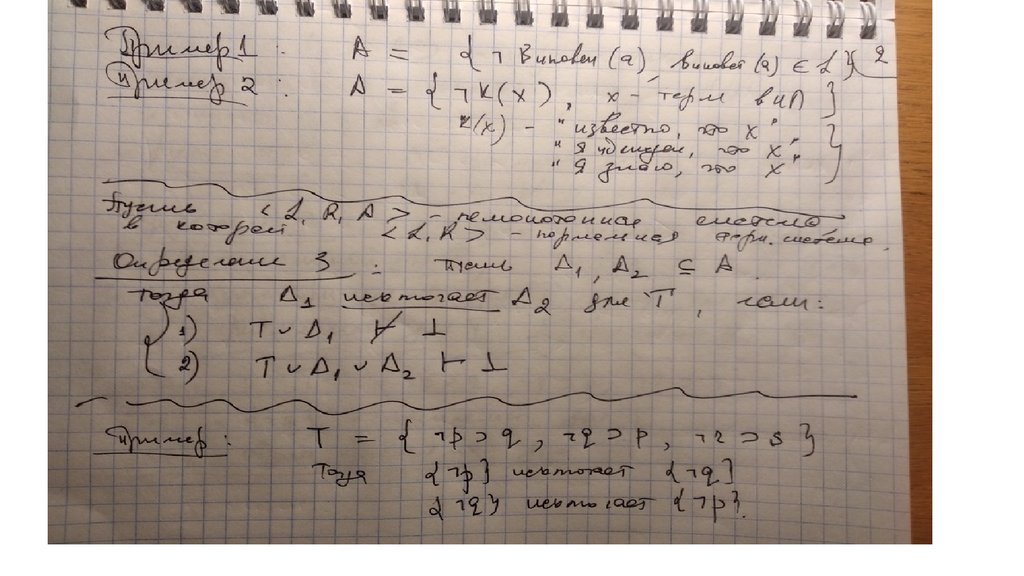 Пример 1 : A = { ¬ Виновен (a), виновен (a) ∈ L } 2
Пример 2 : A = { ¬K(x), x – терм вип }
K(x) – "известно, что x"
"Я убежден, что x"
"Я знаю, что x"
Пусть < L, R, A > – немонотонная система,
в которой < L, R > – нормальная форм. система.
Определение 3 : Пусть Δ₁, Δ₂ ⊆ A.
тогда Δ₁ исключает Δ₂ для T, если:
1) T ∪ Δ₁ ⊬ ⊥
2) T ∪ Δ₁ ∪ Δ₂ ⊢ ⊥
Пример: T = { ¬p ⊃ q, ¬q ⊃ p, ¬r ⊃ s }
Тогда {¬p} исключает {¬q}
{¬q} исключает {¬p}.